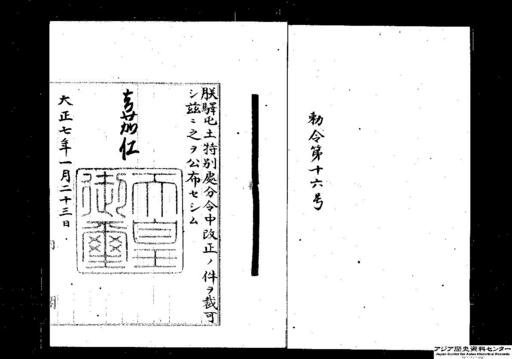 勅令第十六号
朕驛屯土特別處分令中改正ノ件ヲ裁可
シ茲ニ之ヲ公布セシム
嘉仁
天皇
御璽
大正七年一月二十三日
アジア歴史資料センター
Japan Center for Asian Historical Records